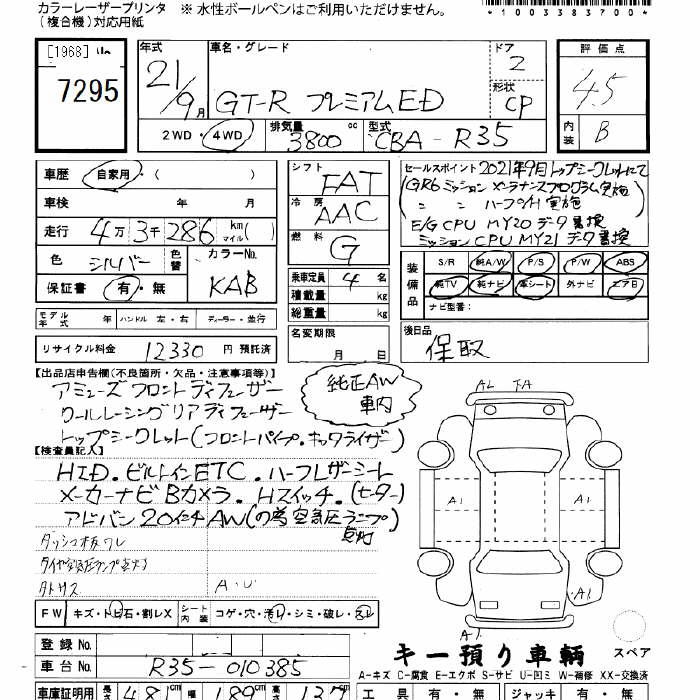 カラーレーザープリンタ ※ 水性ボールペンはご利用いただけません。
(複合機)対応用紙
*1003383700*
[1968]
7295
年式 21/9月
車名・グレード
GT-R プレミアムED
ドア 2
形状 CP
評価点 4.5
内装 B
2WD・4WD
排気量 3800 cc
型式 CBA-R35
車歴 自家用・( )
車検 年 月
走行 4万3千286 km マイル( )
色 シルバー 色替
カラーNo. KAB
保証書 有・無
シフト FAT
冷房 AAC
燃料 G
乗車定員 4 名
積載量 kg
総重量 kg
名変期限 月 日
セールスポイント 2021年9月トップシークレットにて
(GR6ミッション メーテナンスプログラム実施
( 〃 〃 ハーフO/H実施
E/G CPU MY20 データ書換
ミッションCPU MY21 データ書換
装備品
S/R 純A/W P/S P/W ABS
純TV 純ナビ 革シート 外ナビ エアB
ナビ型番:
モデル年式 年 ハンドル 左・右 ディーラー・並行
リサイクル料金 12330 円 預託済
後日品
保取
【出品店申告欄(不良箇所・欠品・注意事項等)】
アミューズ フロントディフューザー
クールレーシングリアディフューザー
トップシークレット(フロントパイプ・キャタライザー)
純正AW
車内
【検査員記入】
HID.ビルトインETC.ハーフレザーシート
メーカーナビ Bカメラ.Hスイッチ.(ヒーター)
アドバン20インチAW(の為空気圧ランプ)
点灯
A・U
A1 A1
A1 A1
A1
A1
FW キズ・トビ石・割レX
シート内装 コゲ・穴・汚レ・シミ・破レ・スレ
登録No.
車台No. R35-010385
キー預り車輌
スペア
A-キズ C-腐食 E-エクボ S-サビ U-凹ミ W-補修 XX-交換済
車庫証明用 長さ 481cm 189cm 137
工具 有・無 ジャッキ 有・無